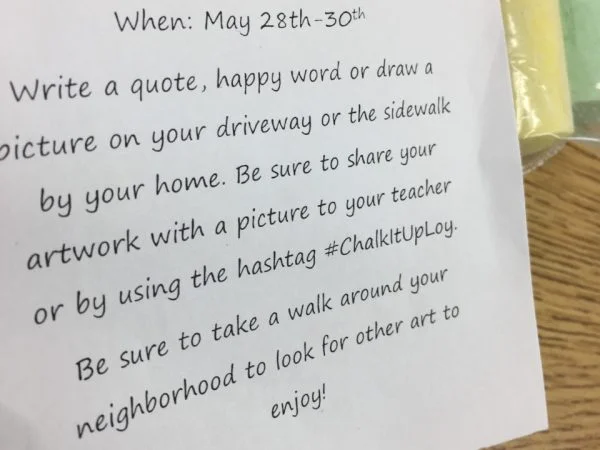 When: May 28th-30th
Write a quote, happy word or draw a
picture on your driveway or the sidewalk
by your home. Be sure to share your
artwork with a picture to your teacher
or by using the hashtag #ChalkItUpLoy.
Be sure to take a walk around your
neighborhood to look for other art to
enjoy!